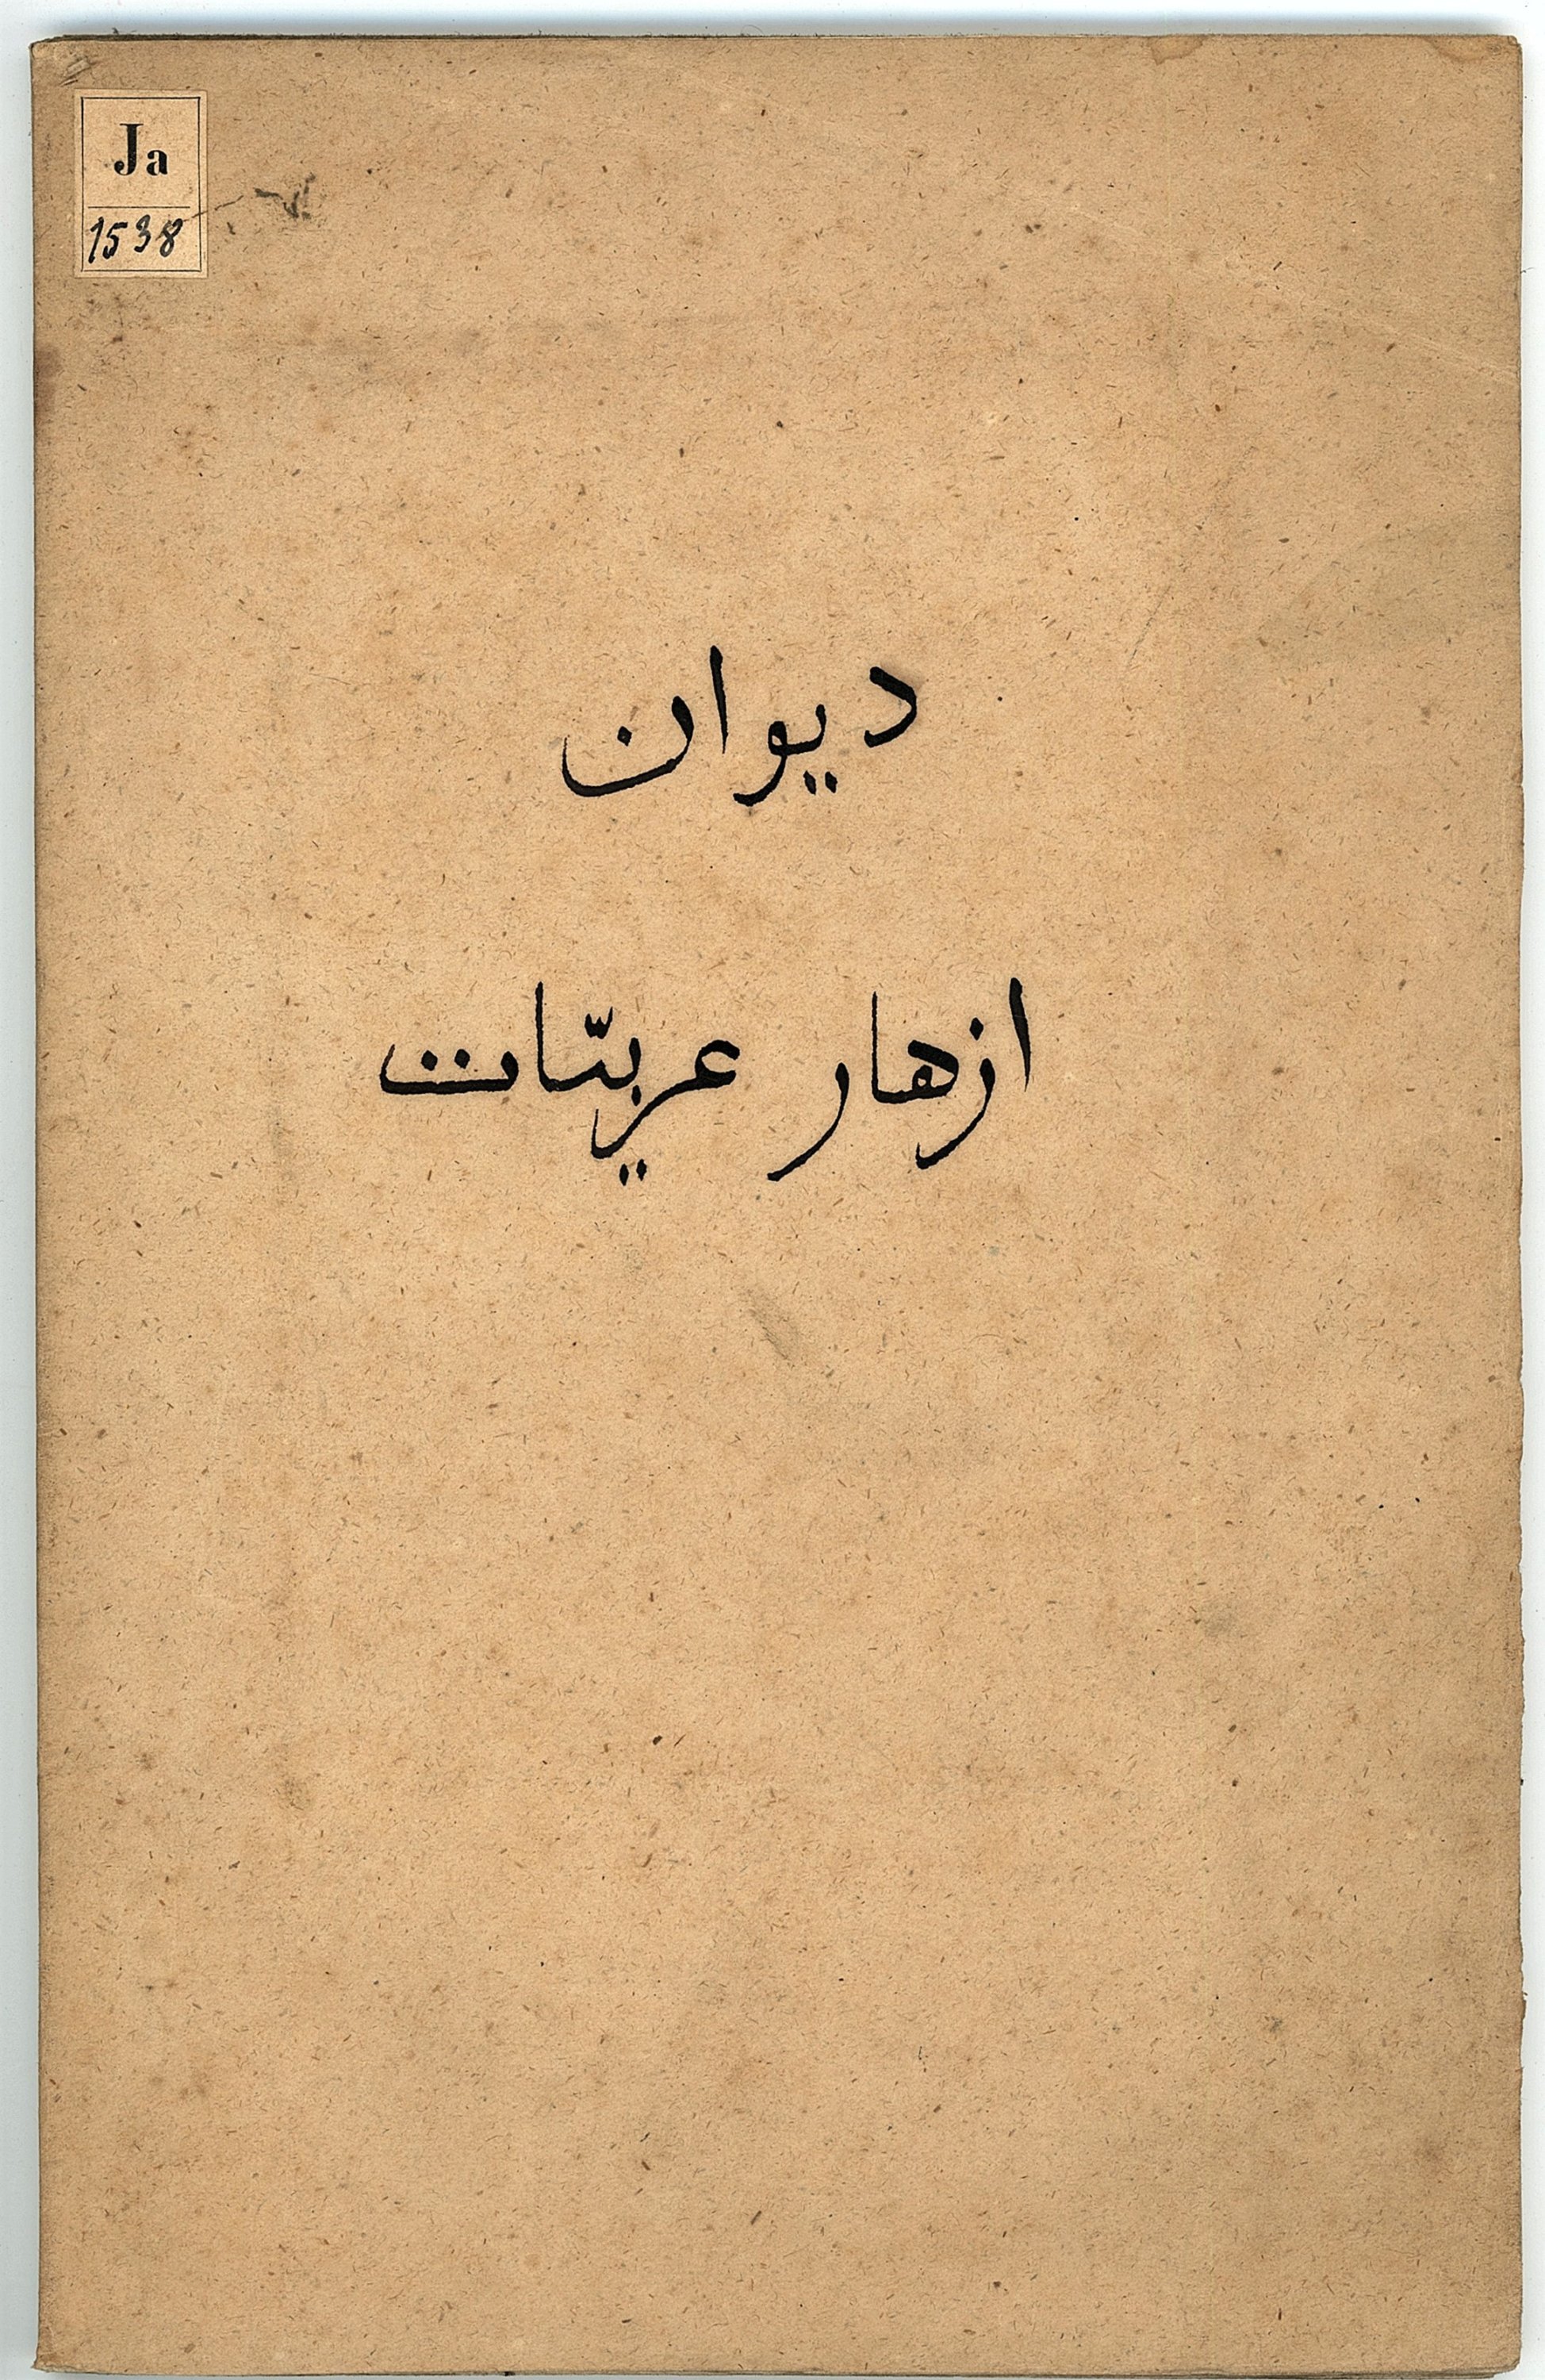 Ja
1538
ديوان
ازهار عربيّات